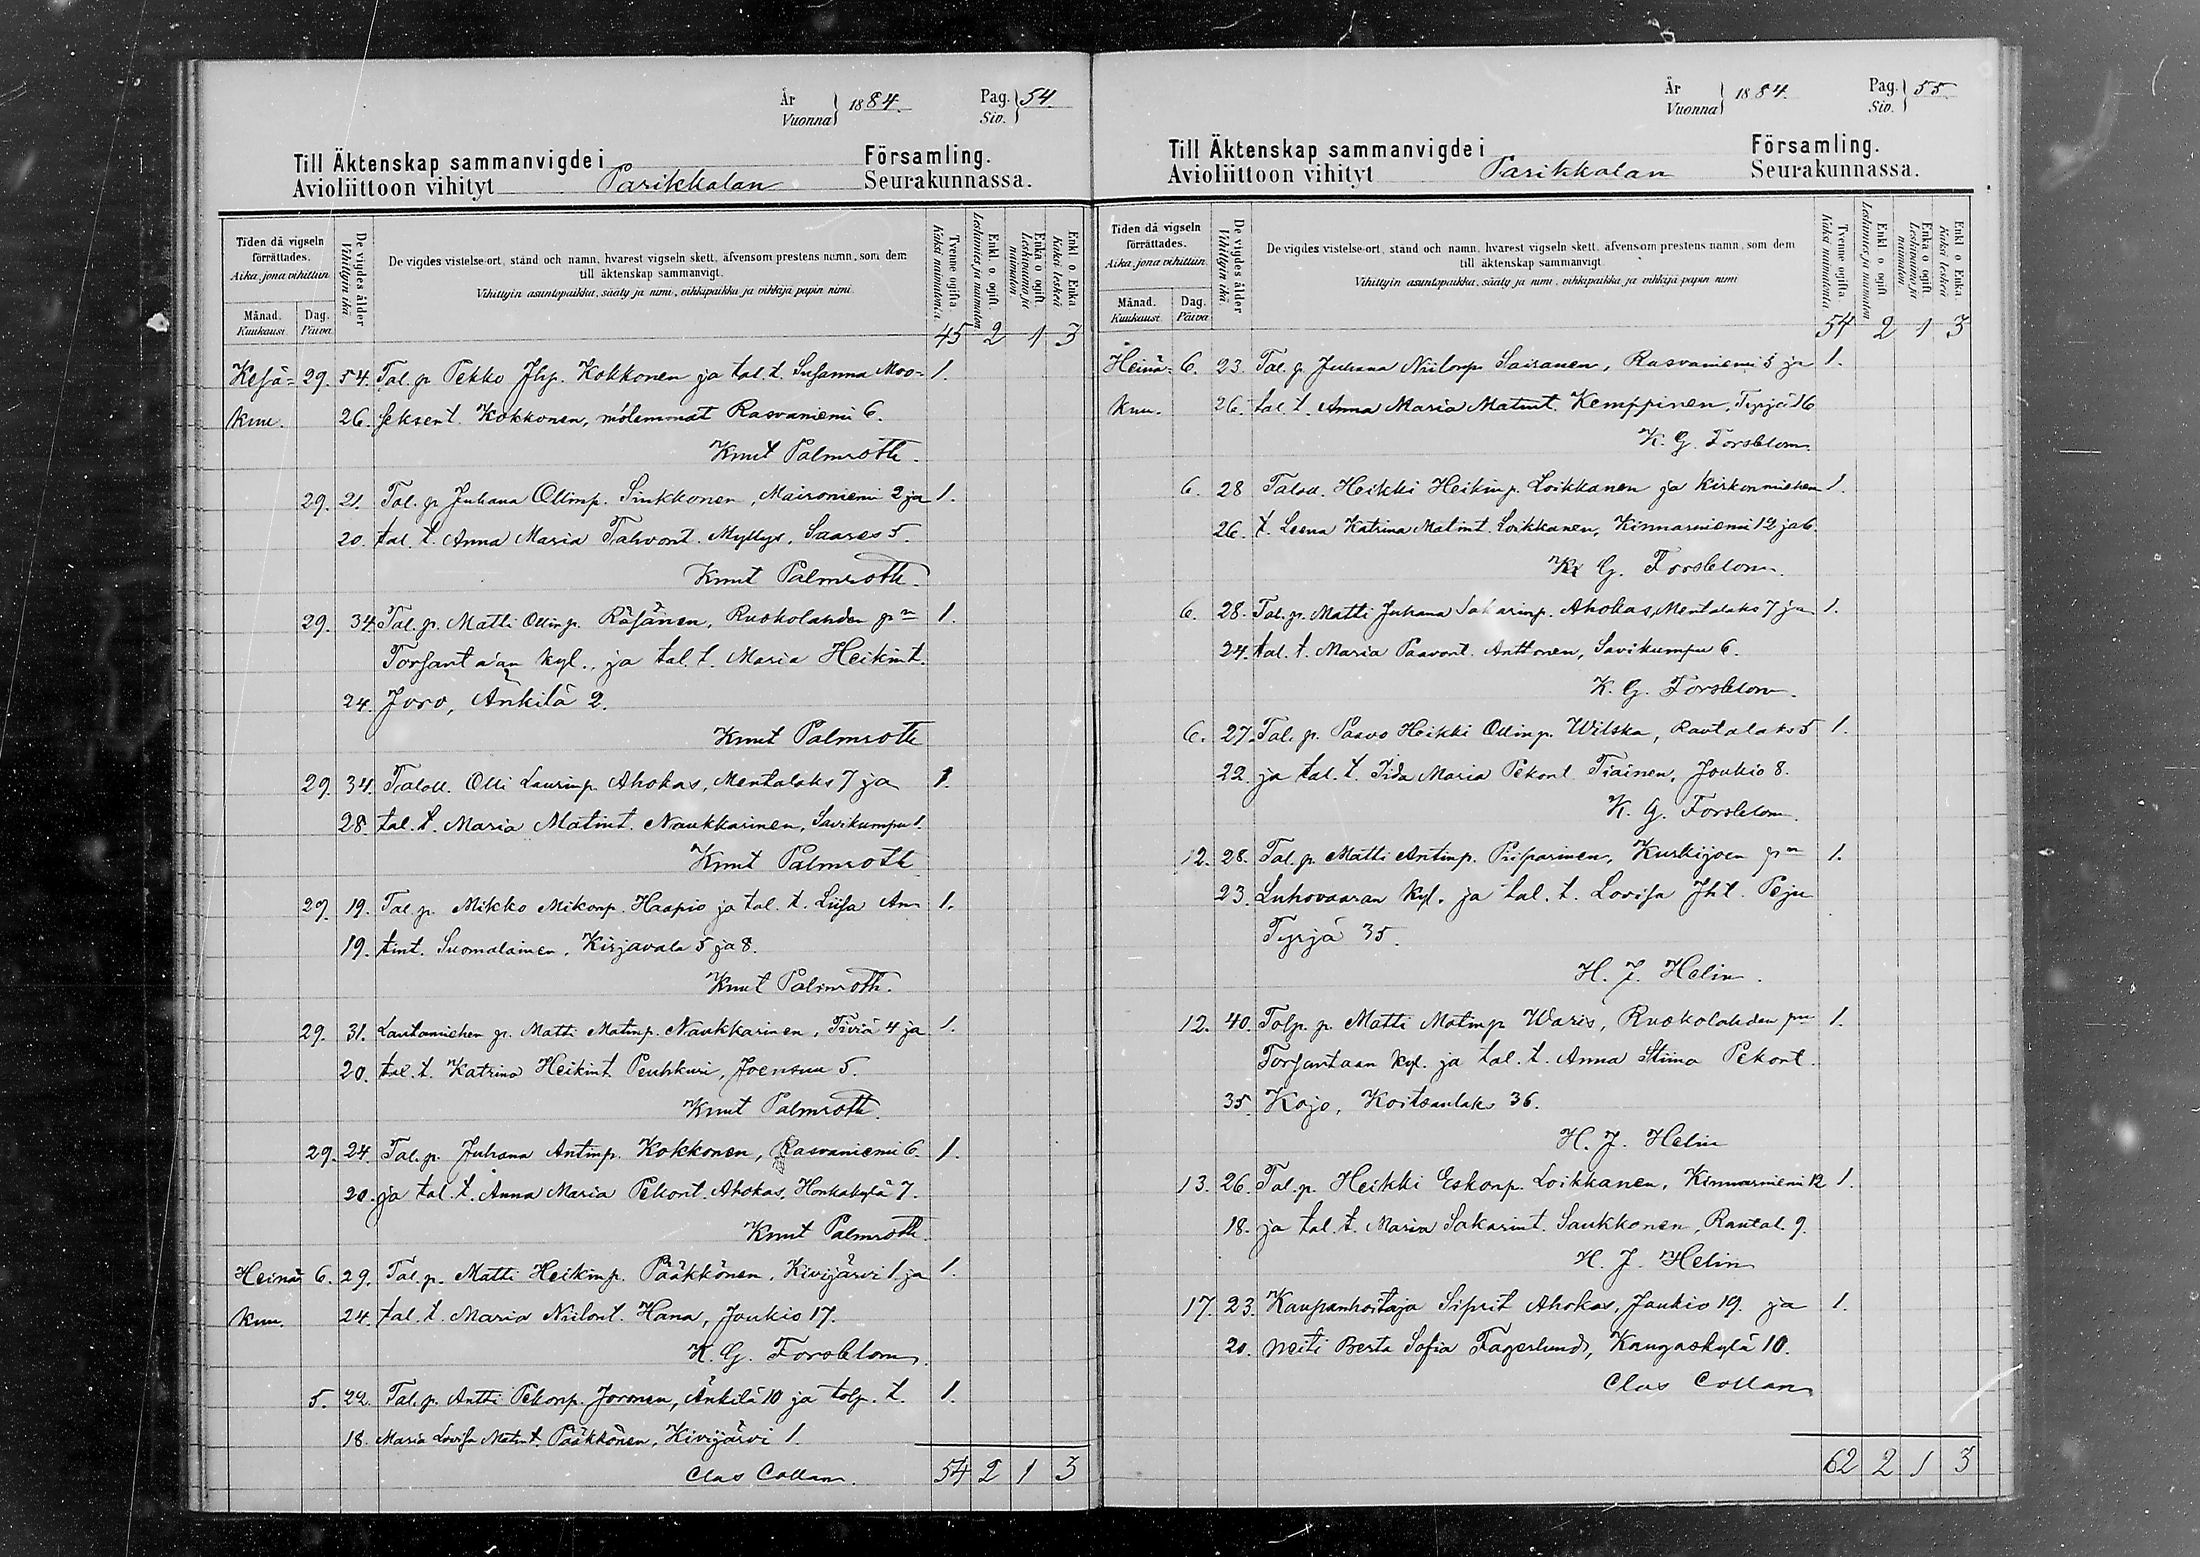 År
Vuonna } 1884.
Pag.
Siv. } 54.
Till Äktenskap sammanvigde i Församling.
Avioliittoon vihityt Parikkalan Seurakunnassa.
Tiden då vigseln förrättades.
Aika, jona vihittiin.
Månad. Kuukausi.
Dag. Päivä.
De vigdes ålder
Vihittyin ikä
De vigdes vistelse-ort, stånd och namn, hvarest vigseln skett, äfvensom prestens namn, som dem
till äktenskap sammanvigt.
Vihittyin asuntopaikka, sääty ja nimi, vihkipaikka ja vihkijä papin nimi
Tvenne ogifta
Kaksi naimatonta
Enkl. o. ogift.
Leskimies ja naimaton
Enka o. ogift
Leskivaimo ja naimaton
Enkl. o. Enka
Kaksi leskeä
45 2 1 3
Kesä= 29. 54. Tal. p. Pekko Jhp. Kokkonen ja tal. t. Susanna Moo= 1.
kuu. 26. seksent. Kokkonen, molemmat Rasvaniemi 6.
Knut Palmroth.
29. 21. Tal. p. Juhana Ollinp. Sinkkonen, Maironiemi 2 ja 1.
20. tal. t. Anna Maria Tahvont. Myllys, Saares 5.
Knut Palmroth.
29. 34. Tal. p. Matti Ollinp. Räsänen, Ruokolahden p:n 1.
Torsantaan kyl., ja tal. t. Maria Heikint.
24. Joro, Änkilä 2.
Knut Palmroth
29. 34. Taloll. Olli Laurinp. Ahokas, Mentalaks 7 ja 1.
28. tal. t. Maria Matint. Naukkarinen, Savikumpu 1.
Knut Palmroth
29. 19. Tal. p. Mikko Mikonp. Haapio ja tal. t. Liisa An= 1.
19. tint. Suomalainen, Kirjavala 5 ja 8.
Knut Palmroth.
29. 31. Lautamiehen p. Matti Matinp. Naukkarinen, Tiviä 4 ja 1.
20. tal. t. Katrina Heikint. Peuhkuri, Joensuu 5.
Knut Palmroth.
29. 24. Tal. p. Juhana Antinp. Kokkonen, Rasvaniemi 6. 1.
20. ja tal. t. Anna Maria Pekont. Ahokas, Honkakylä 7.
Knut Palmroth.
Heinä= 6. 29. Tal. p. Matti Heikinp. Pääkkönen, Kivijärvi 1 ja 1.
kuu. 24. tal. t. Maria Niilont. Hana, Joukio 17.
K. G. Forsblom.
5. 22. Tal. p. Antti Pekonp. Jormen, Änkilä 10 ja tolp. t. 1.
18. Maria Lovisa Matint. Pääkkönen, Kivijärvi 1.
Clas Collan.
54 2 1 3
År
Vuonna } 1884.
Pag.
Siv. } 55
Till Äktenskap sammanvigde i Församling.
Avioliittoon vihityt Parikkalan Seurakunnassa.
Tiden då vigseln förrättades.
Aika, jona vihittiin.
Månad. Kuukausi.
Dag. Päivä.
De vigdes ålder
Vihittyin ikä
De vigdes vistelse-ort, stånd och namn, hvarest vigseln skett, äfvensom prestens namn, som dem
till äktenskap sammanvigt.
Vihittyin asuntopaikka, sääty ja nimi, vihkipaikka ja vihkijä papin nimi
Tvenne ogifta
Kaksi naimatonta
Enkl. o. ogift
Leskimies ja naimaton
Enka o. ogift
Leskivaimo ja naimaton
Enkl. o. Enka
Kaksi leskeä
54 2 1 3
Heinä= 6. 23. Tal. p. Juhana Niilonp. Sairanen, Rasvaniemi 5 ja 1.
kuu. 26. tal. t. Anna Maria Matint. Kemppinen, Tyrjä 16
K. G. Forsblom.
6. 28 Taloll. Heikki Heikinp. Loikkanen ja kirkonmiehen 1.
26. t. Leena Katrina Matint. Loikkanen, Kinnarniemi 12 ja 6.
K. G. Forsblom.
6. 28. Tal. p. Matti Juhana Sakarinp. Ahokas, Mentalaks 7 ja 1.
24. tal. t. Maria Paavont. Anttonen, Savikumpu 6.
K. G. Forsblom.
6. 27. Tal. p. Paavo Heikki Ollinp. Wilska, Rautalaks 5 1.
22. ja tal. t. Iida Maria Pekont. Tiainen, Joukio 8.
K. G. Forsblom.
12. 28. Tal. p. Matti Antinp. Piisparinen, Kurkijoen p:n 1.
23. Luhovaaran kyl. ja tal. t. Lovisa Jht. Peju
Tyrjä 35.
H. J. Helin.
12. 40. Tolp. p. Matti Matinp. Waris, Ruokolahden p:n 1.
Torsantaan kyl. ja tal. t. Anna Stiina Pekont.
35. Kojo, Koitsanlaks 36.
H. J. Helin
13. 26. Tal. p. Heikki Eskonp. Loikkanen, Kinnarniemi 12 1.
18. ja tal. t. Maria Sakarint. Saukkonen, Rautal. 9.
H. J. Helin
17. 23. Kaupanhoitaja Siprit Ahokas, Joukio 19. ja 1.
20. neiti Berta Sofia Fagerlund, Kangaskylä 10.
Clas Collan
62 2 1 3